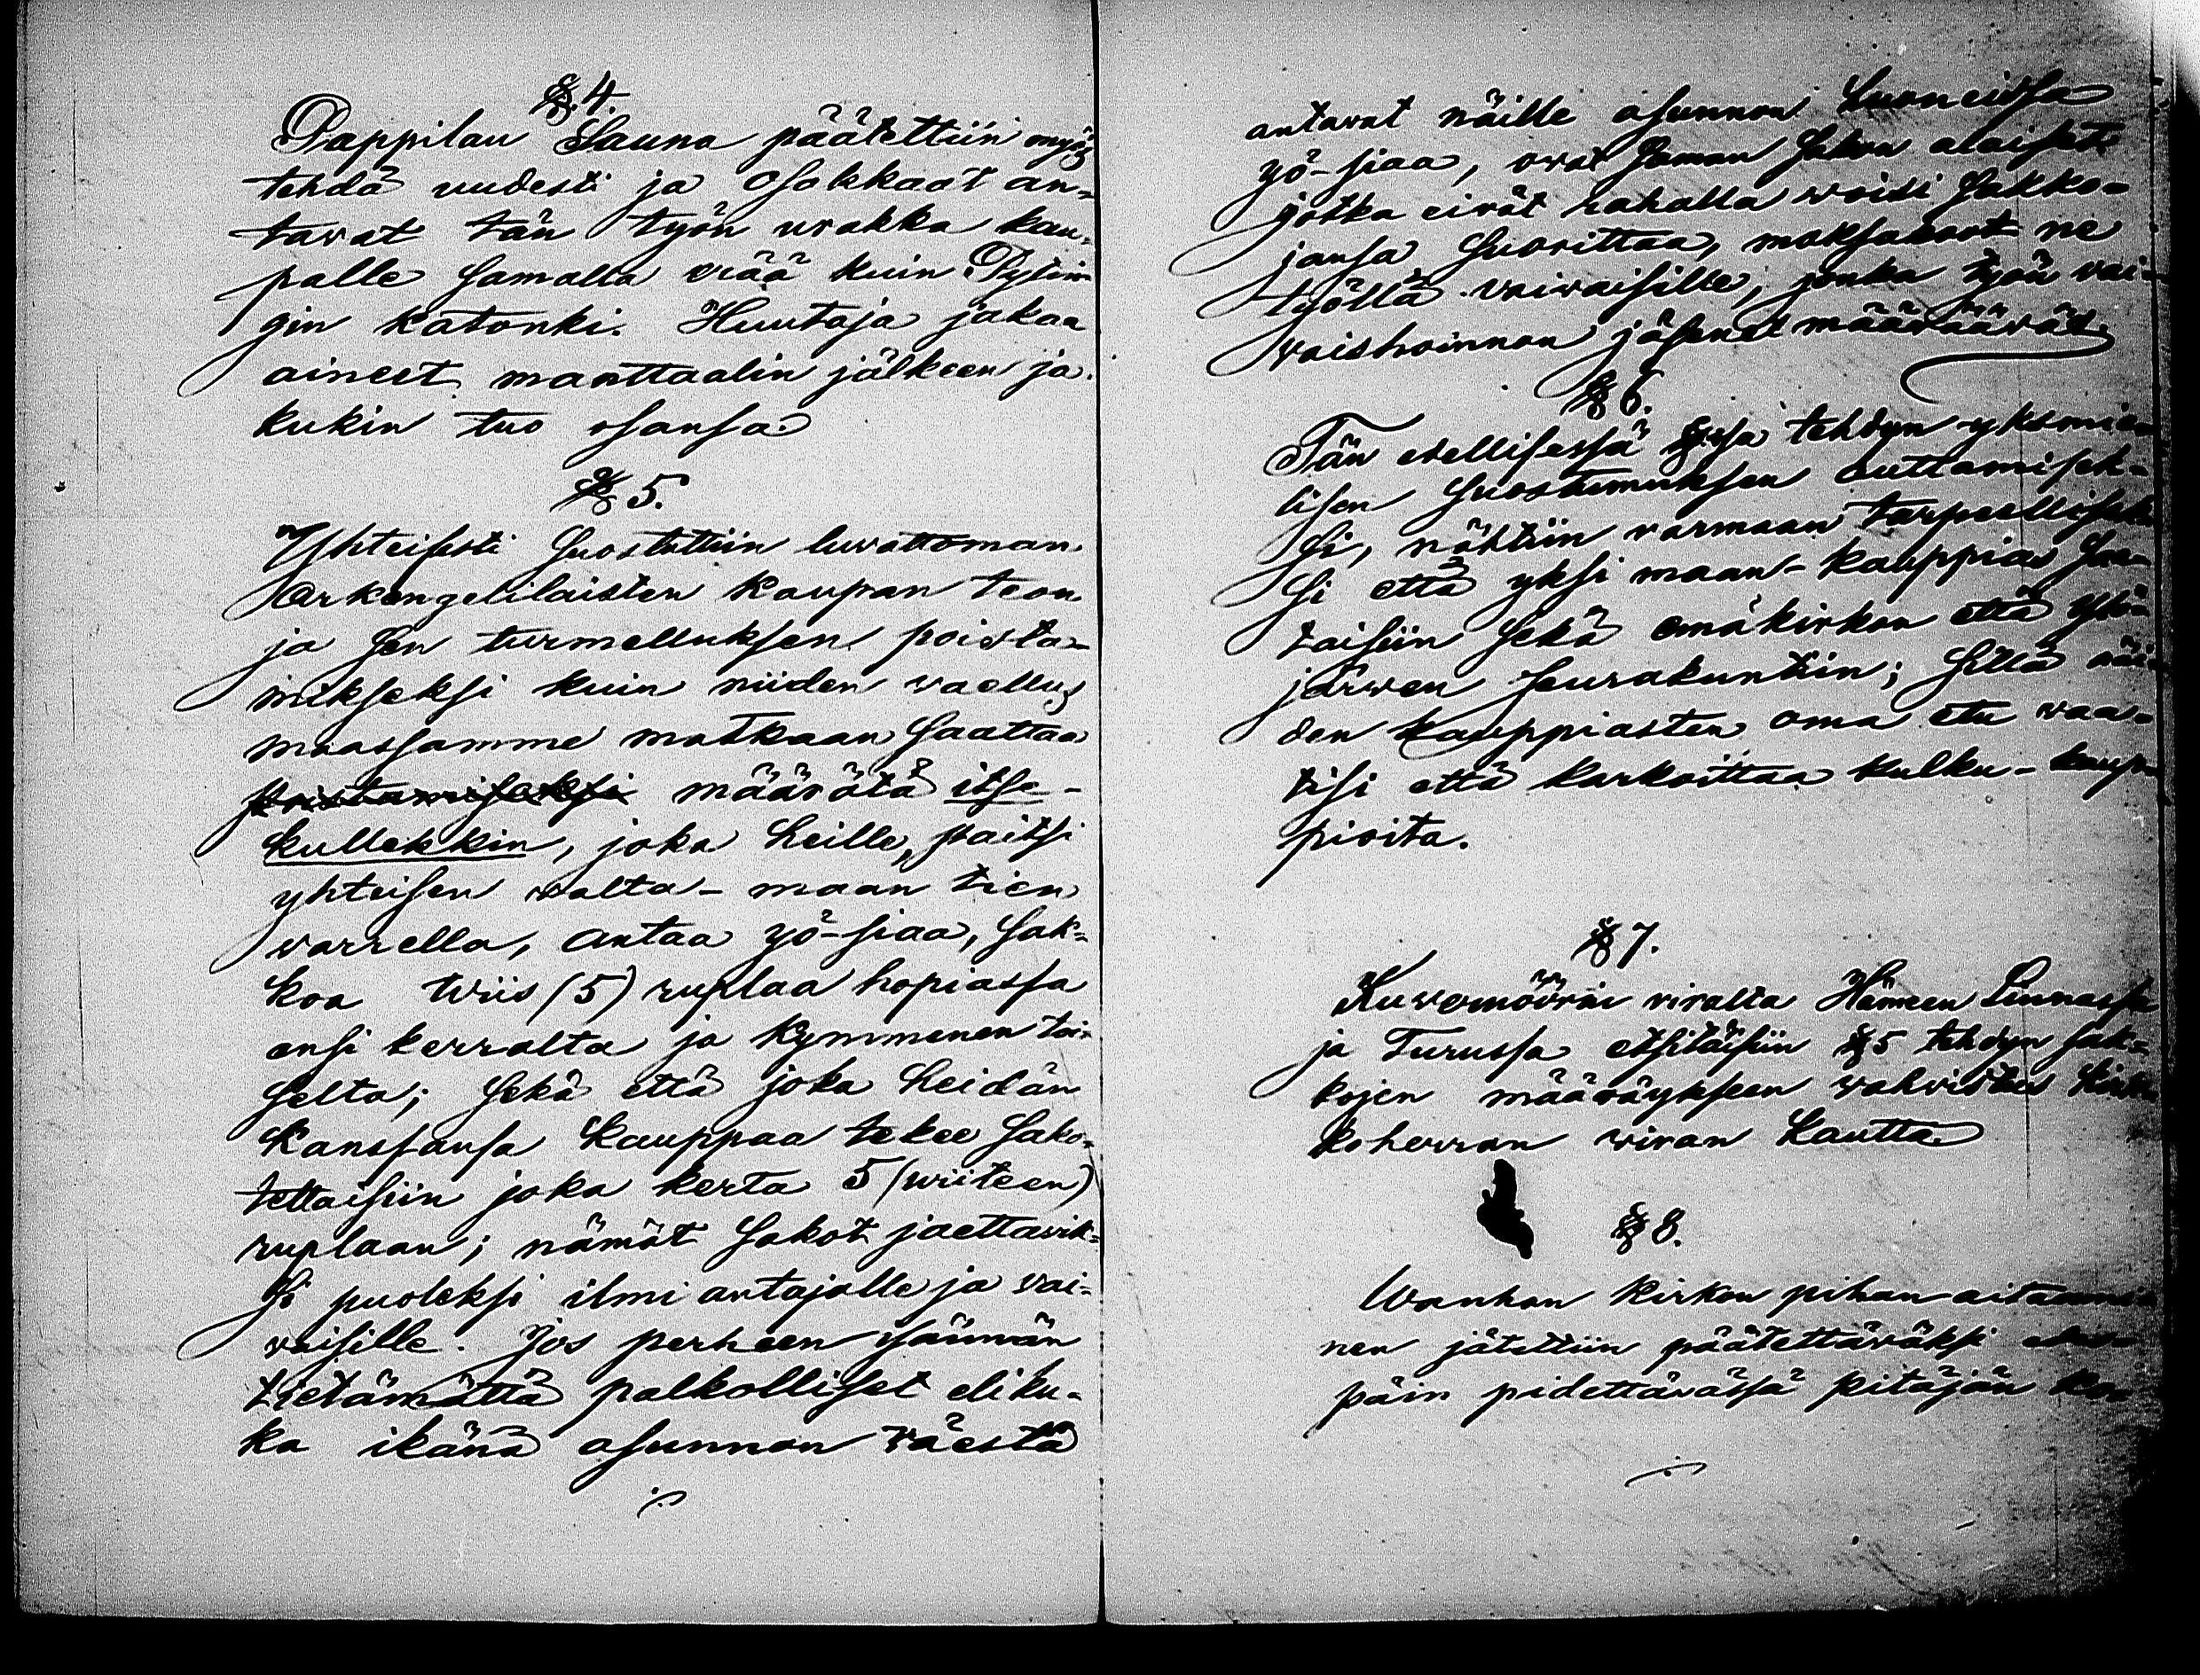 §.4.
Pappilan Sauna päätettiin myös
tehdä uudesti ja osakkaat an-
tavat tän työn urakka kau-
palle samalla
gin katonki. Huutaja jakaa
aineet manttaalin jälkeen ja
kukin tuo osansa
§ 5.
Yhteisesti suostuttiin luvattoman
Arkengelilaisten kaupan teon
ja sen turmelluksen poista-
mikseksi kuin niiden vaellus
maassamme matkaan saattaa
poistamiseksi määrätä itse-
kullekkin, joka heille, paitsi
yhteisen valta-maan tien
varrella, antaa yö-siaa, sak-
koa wiis (5) ruplaa hopiassa
ensi kerralta ja kymmenen toi-
selta; sekä että joka heidän
kanssansa kauppaa tekee sako-
tettaisiin joka kerta 5 (wiiteen)
ruplaan; nämät sakot jaettavik-
si puoleksi ilmi antajalle ja vai-
vaisille. Jos perheen isännän
tietämättä palkolliset eli ku-
ka ikänä asunnon väestä
antavat näille asunnon huoneissa
yö-siaa, ovat saman sakon alaiset
jotka eivät rahalla voisi sakko-
jansa suorittaa, maksakoot ne
työllä vaivaisille, jonka työn vai-
vaishoinnon jäsenet määräävät.
§ 6.
Tän edellisessä §ssa tehdyn yksmie-
lisen suostumuksen auttamisek-
si, nähtiin varmaan tarpeellisek-
si että yksi maan-kauppias saa-
taisiin sekä emäkirkon että Yli-
järwen seurakuntiin; sillä näi-
den kauppiasten oma etu vaa-
tisi että karkoittaa kulku-kaup-
pioita.
§ 7.
Kuvernöörin viralta Hämeen Linnassa
ja Turussa etsitäisiin § 5 tehdyn sak-
kojen määräykseen vahvistus Kirk-
koherran viran kautta.
§ 8.
Wanhan Kirkon pihan aitaami-
nen jätettiin päätettäväksi
päin pidettävässä pitäjän ko-